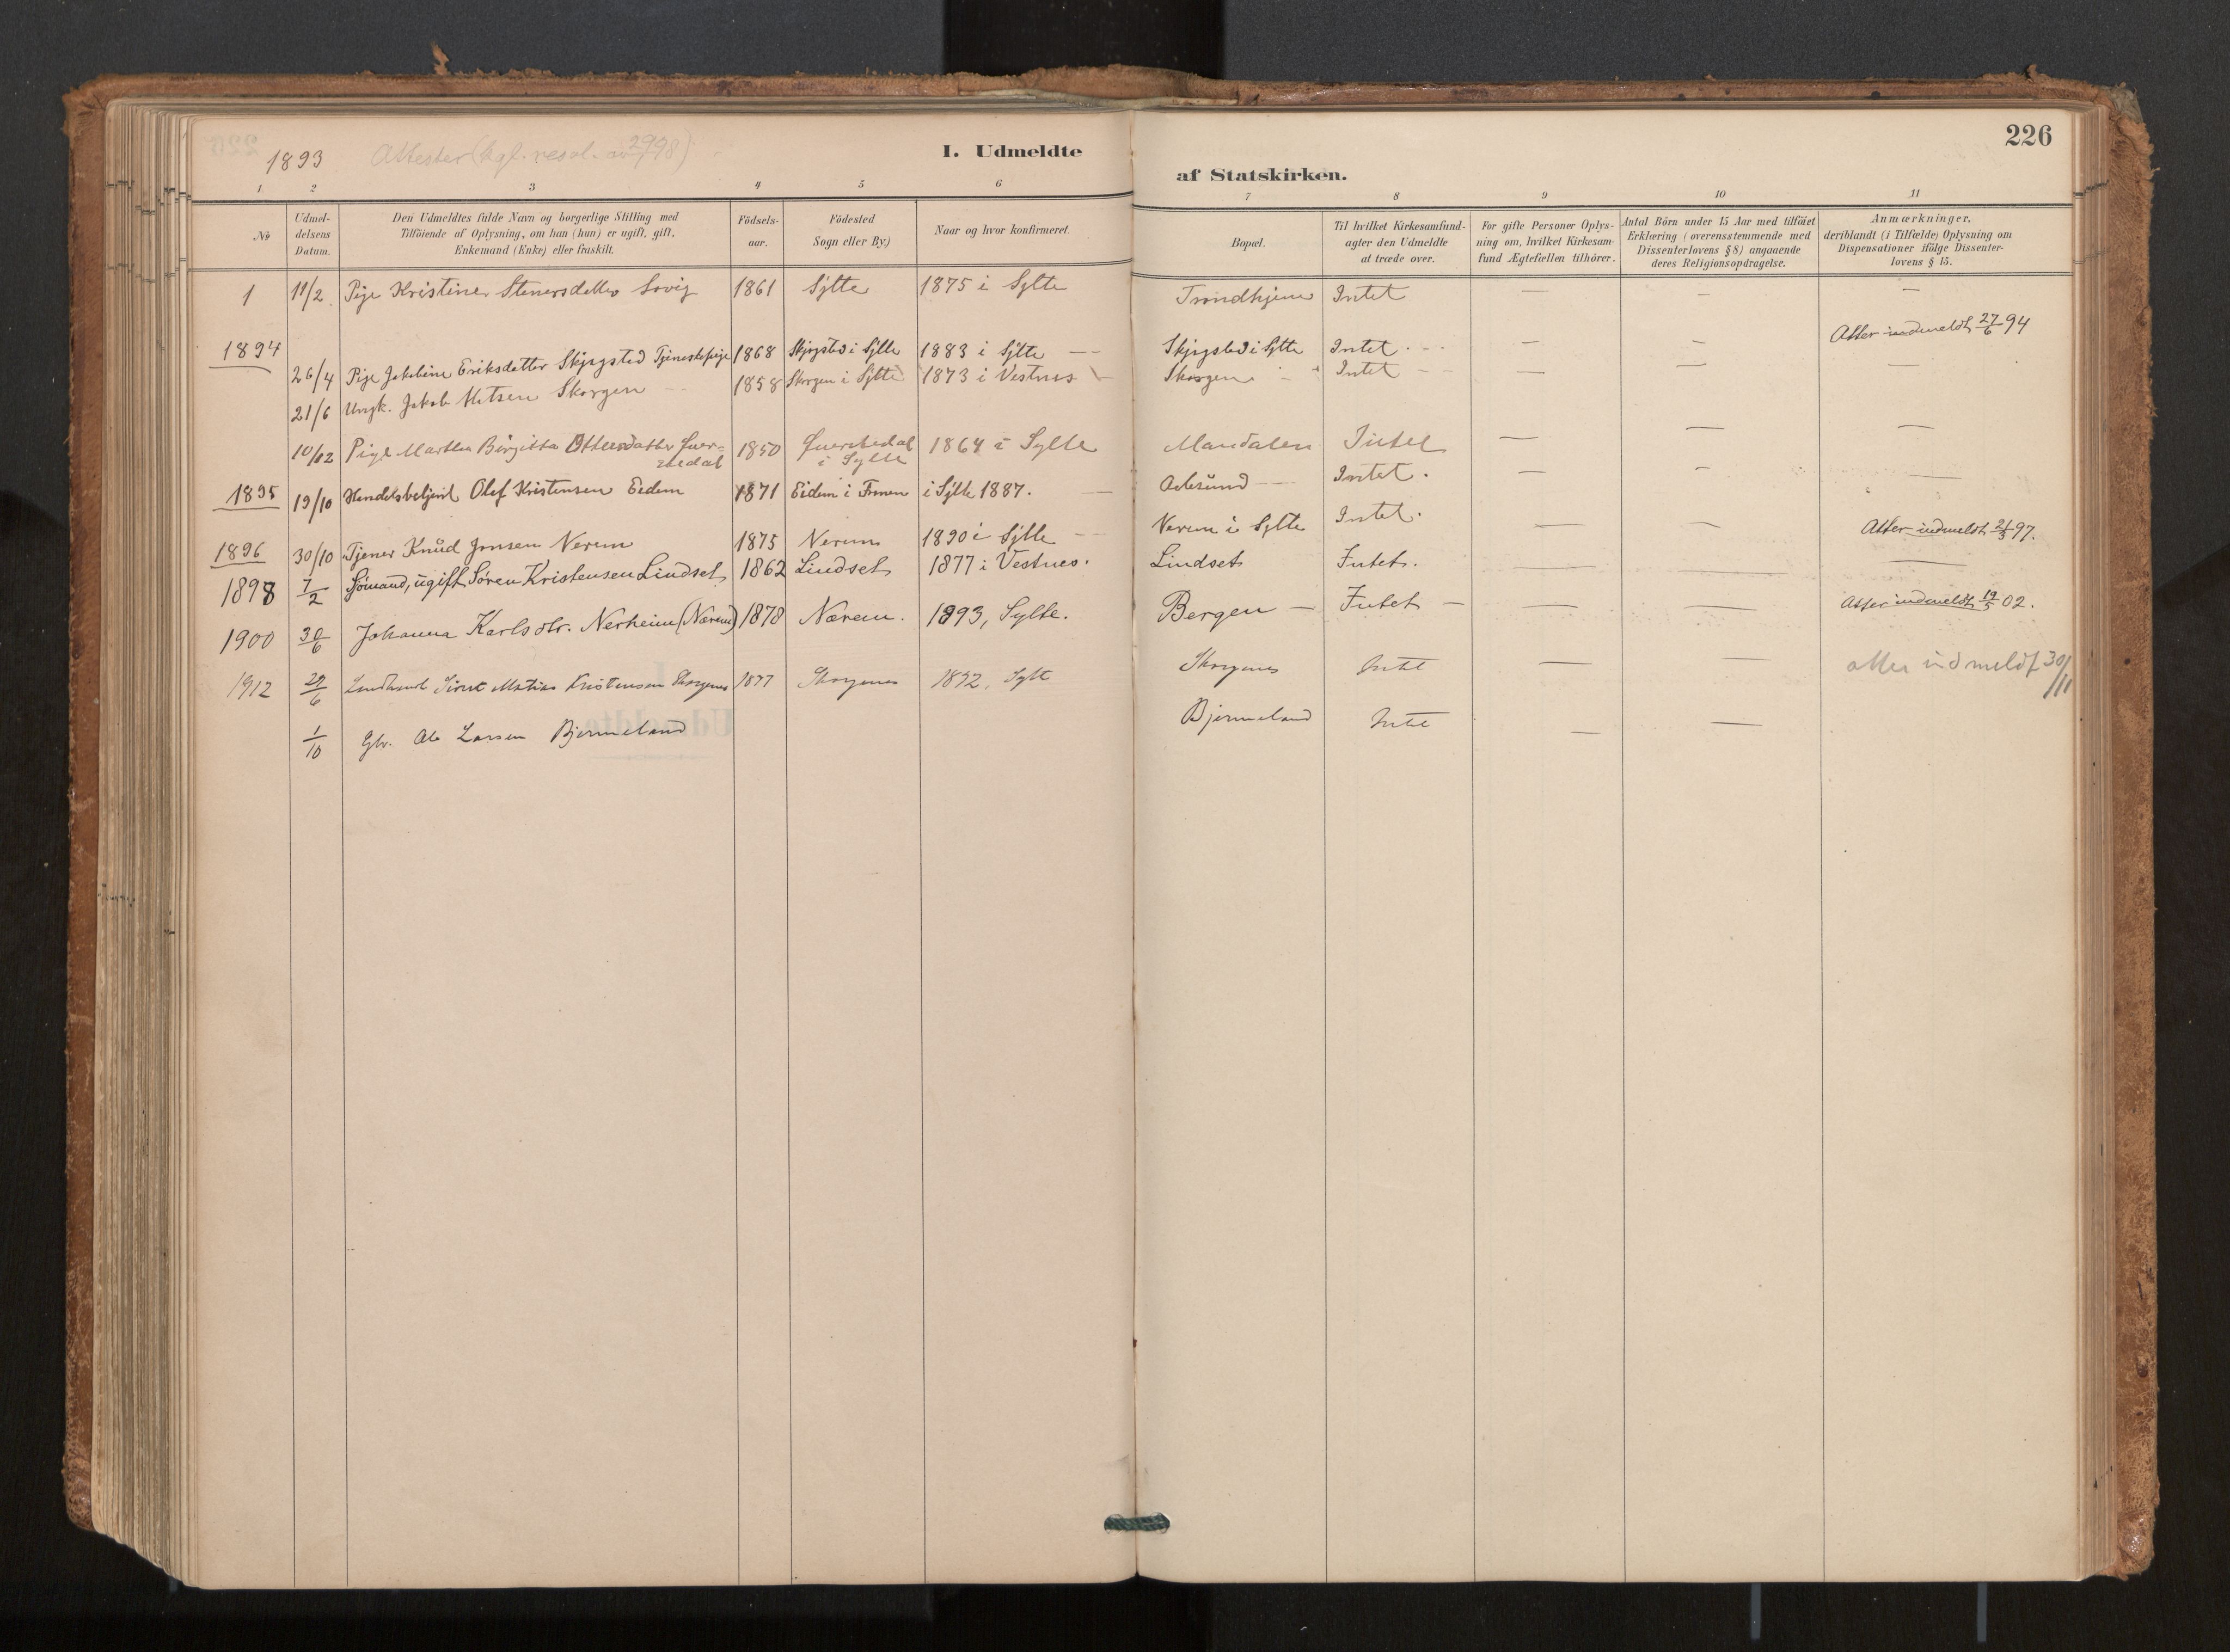 1893 Attester (kgl. resol. av 29/7 98)
I. Udmeldte
af Statskirken.
226
1 2 3 4 5 6 7 8 9 10 11
№
Udmel-
delsens
Datum.
Den Udmeldtes fulde Navn og borgerlige Stilling med
Tilföiende af Oplysning, om han (hun) er ugift, gift,
Enkemand (Enke) eller fraskilt.
Födsels-
aar.
Födested
Sogn eller By.)
Naar og hvor konfirmeret.
Bopæl.
Til hvilket Kirkesamfund-
agter den Udmeldte
at træde over.
For gifte Personer Oplys-
ning om, hvilket Kirkesam-
fund Ægtefællen tilhörer.
Antal Börn under 15 Aar med tilföiet
Erklæring (overensstemmende med
Dissenterlovens § 8) angaaende
deres Religionsopdragelse.
Anmærkninger,
deriblandt (i Tilfælde) Oplysning om
Dispensationer ifölge Dissenter-
lovens § 15.
1 11/2. Pige Kristine Stenersdatter Sovig 1861 Sylte 1875 i Sylte Trondhjem Intet — — —
1894
26/4 Pige Jakobine Eriksdatter Skjegsted Tjenestepige 1868 Skjegsted i Sylte 1883 i Sylte — Skjegsted i Sylte Intet. — — Atter indmeldt 27/6 94
21/6 Ungk. Jakob Matsen Skorgen 1858 Skorgen i Sylte 1873 i Vestnes Skorgen Intet — — —
10/12 Pige Martha Birgitta Ottersdatter Quer=
stedal 1850 Querstedal
i Sylte 1864 i Sylte Mandalen Intet — — —
1895 19/10 Handelsbetjent Olof Kristensen Eidem 1871 Eidem i Frænen i Sylte 1887. — Aalesund — Intet. — — —
1896 30/10 Tjener Knud Jonsen Nerem 1875 Nerem 1890 i Sylte — Nerem i Sylte Intet. — — Atter indmeldt 21/3 97.
1898 7/2 Sömand, ugift Søren Kristensen Lindset 1862 Lindset 1877 i Vestnes. Lindset Intet. — — —
1900 30/6 Johanna Karlsdtr. Nerheim (Nærem) 1878 Nærem. 1893, Sylte. Bergen — Intet — — — Atter indmeldt 19/5 02.
1912 29/6 Sivert Matias Kristensen Skorgenes 1877 Skorgenes 1892, Sylte Skorgenes Intet — — atter indmeldt 30/11
1/10 Gbr. Ole Larsen Bjermeland Bjermeland Intet — —